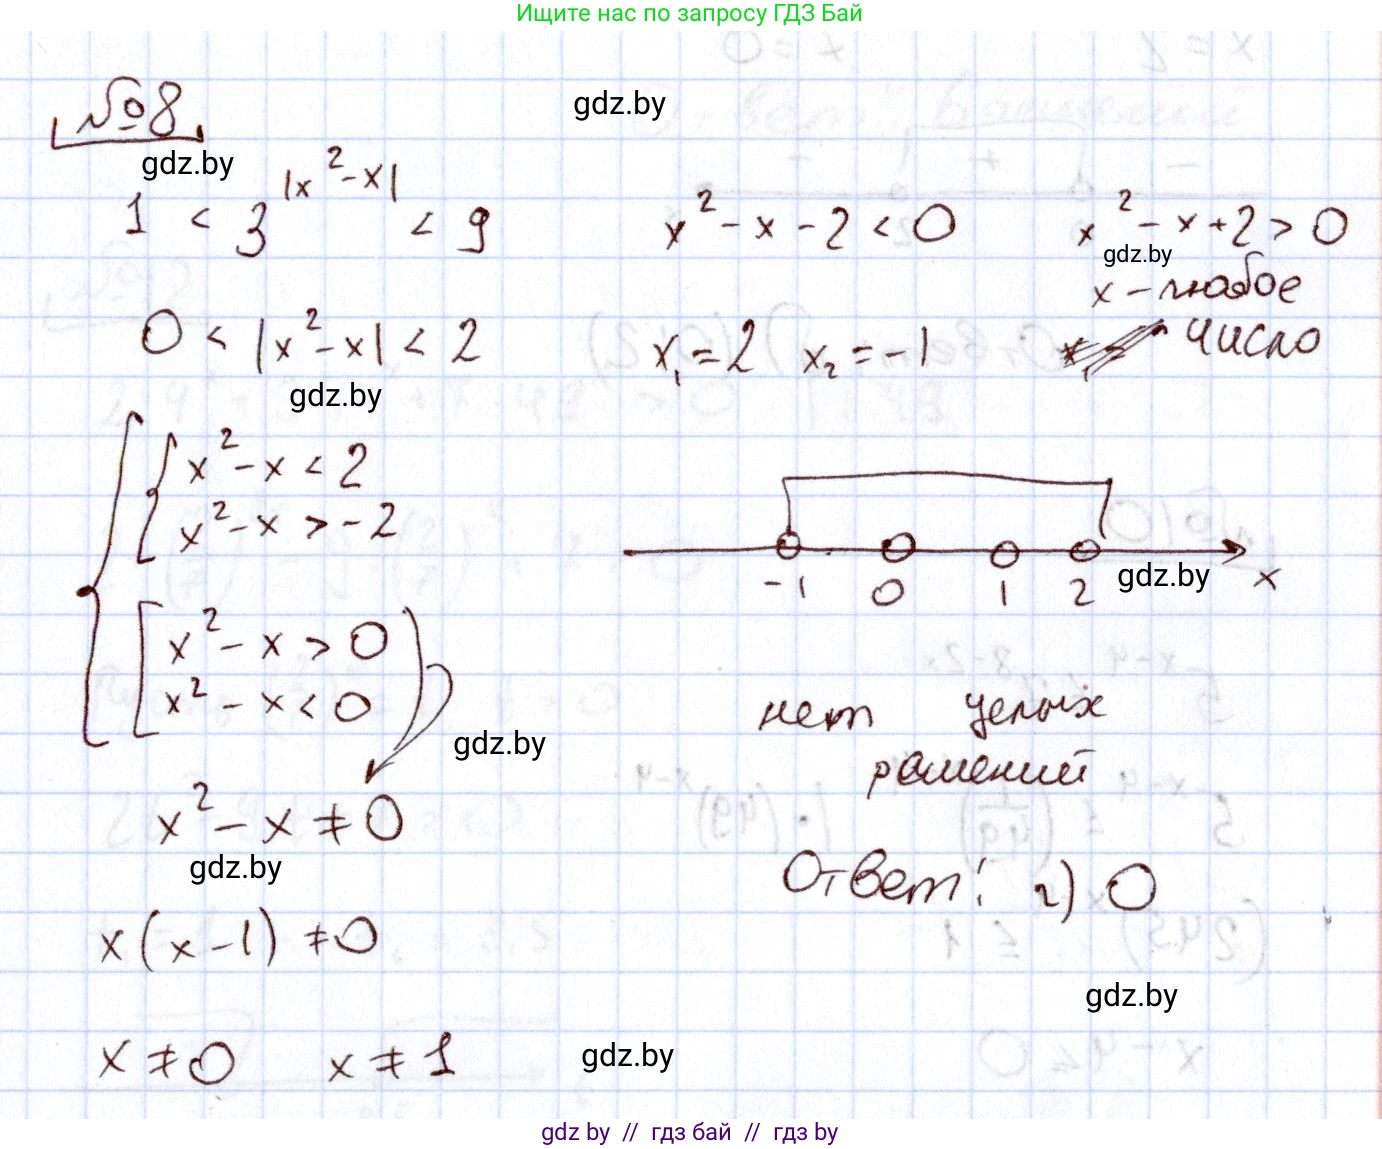 Ищите нас по запросу ГДЗ Бай
№8
gdz.by
gdz.by
1 < 3^|x²-x| < 9
0 < |x²-x| < 2
gdz.by
x²-x < 2
x²-x > -2
x²-x > 0
x²-x < 0
gdz.by
x²-x ≠ 0
gdz.by
x(x-1) ≠ 0
x ≠ 0 x ≠ 1
gdz.by
x²-x-2 < 0
x₁=2 x₂=-1
x²-x+2 > 0
gdz.by
x - любое
число
-1 0 1 2 x
gdz.by
нет целых
решений
Ответ: г) 0
gdz.by
gdz by // гдз бай // гдз by